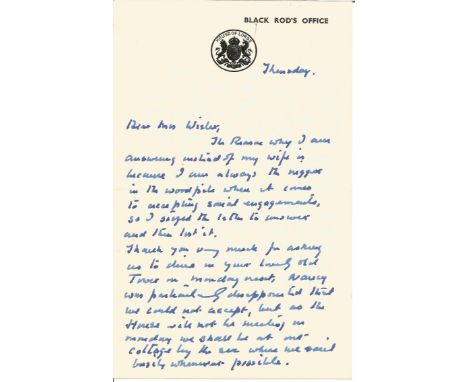 BLACK ROD'S OFFICE
HOUSE OF LORDS
Thursday.
Dear Mrs Wisler,
The Reason why I am
answering instead of my wife is
because I am always the nigger
in the woodpile when it comes
to accepting social engagements,
so I seized the letter to answer
and then lost it.
Thank you very much for asking
us to dine in your lovely old
Tower on Monday next, Nancy
was particularly disappointed that
we could not accept, but as the
House will not be meeting on
Monday we shall be at our
cottage by the sea where we sail
busily whenever possible.